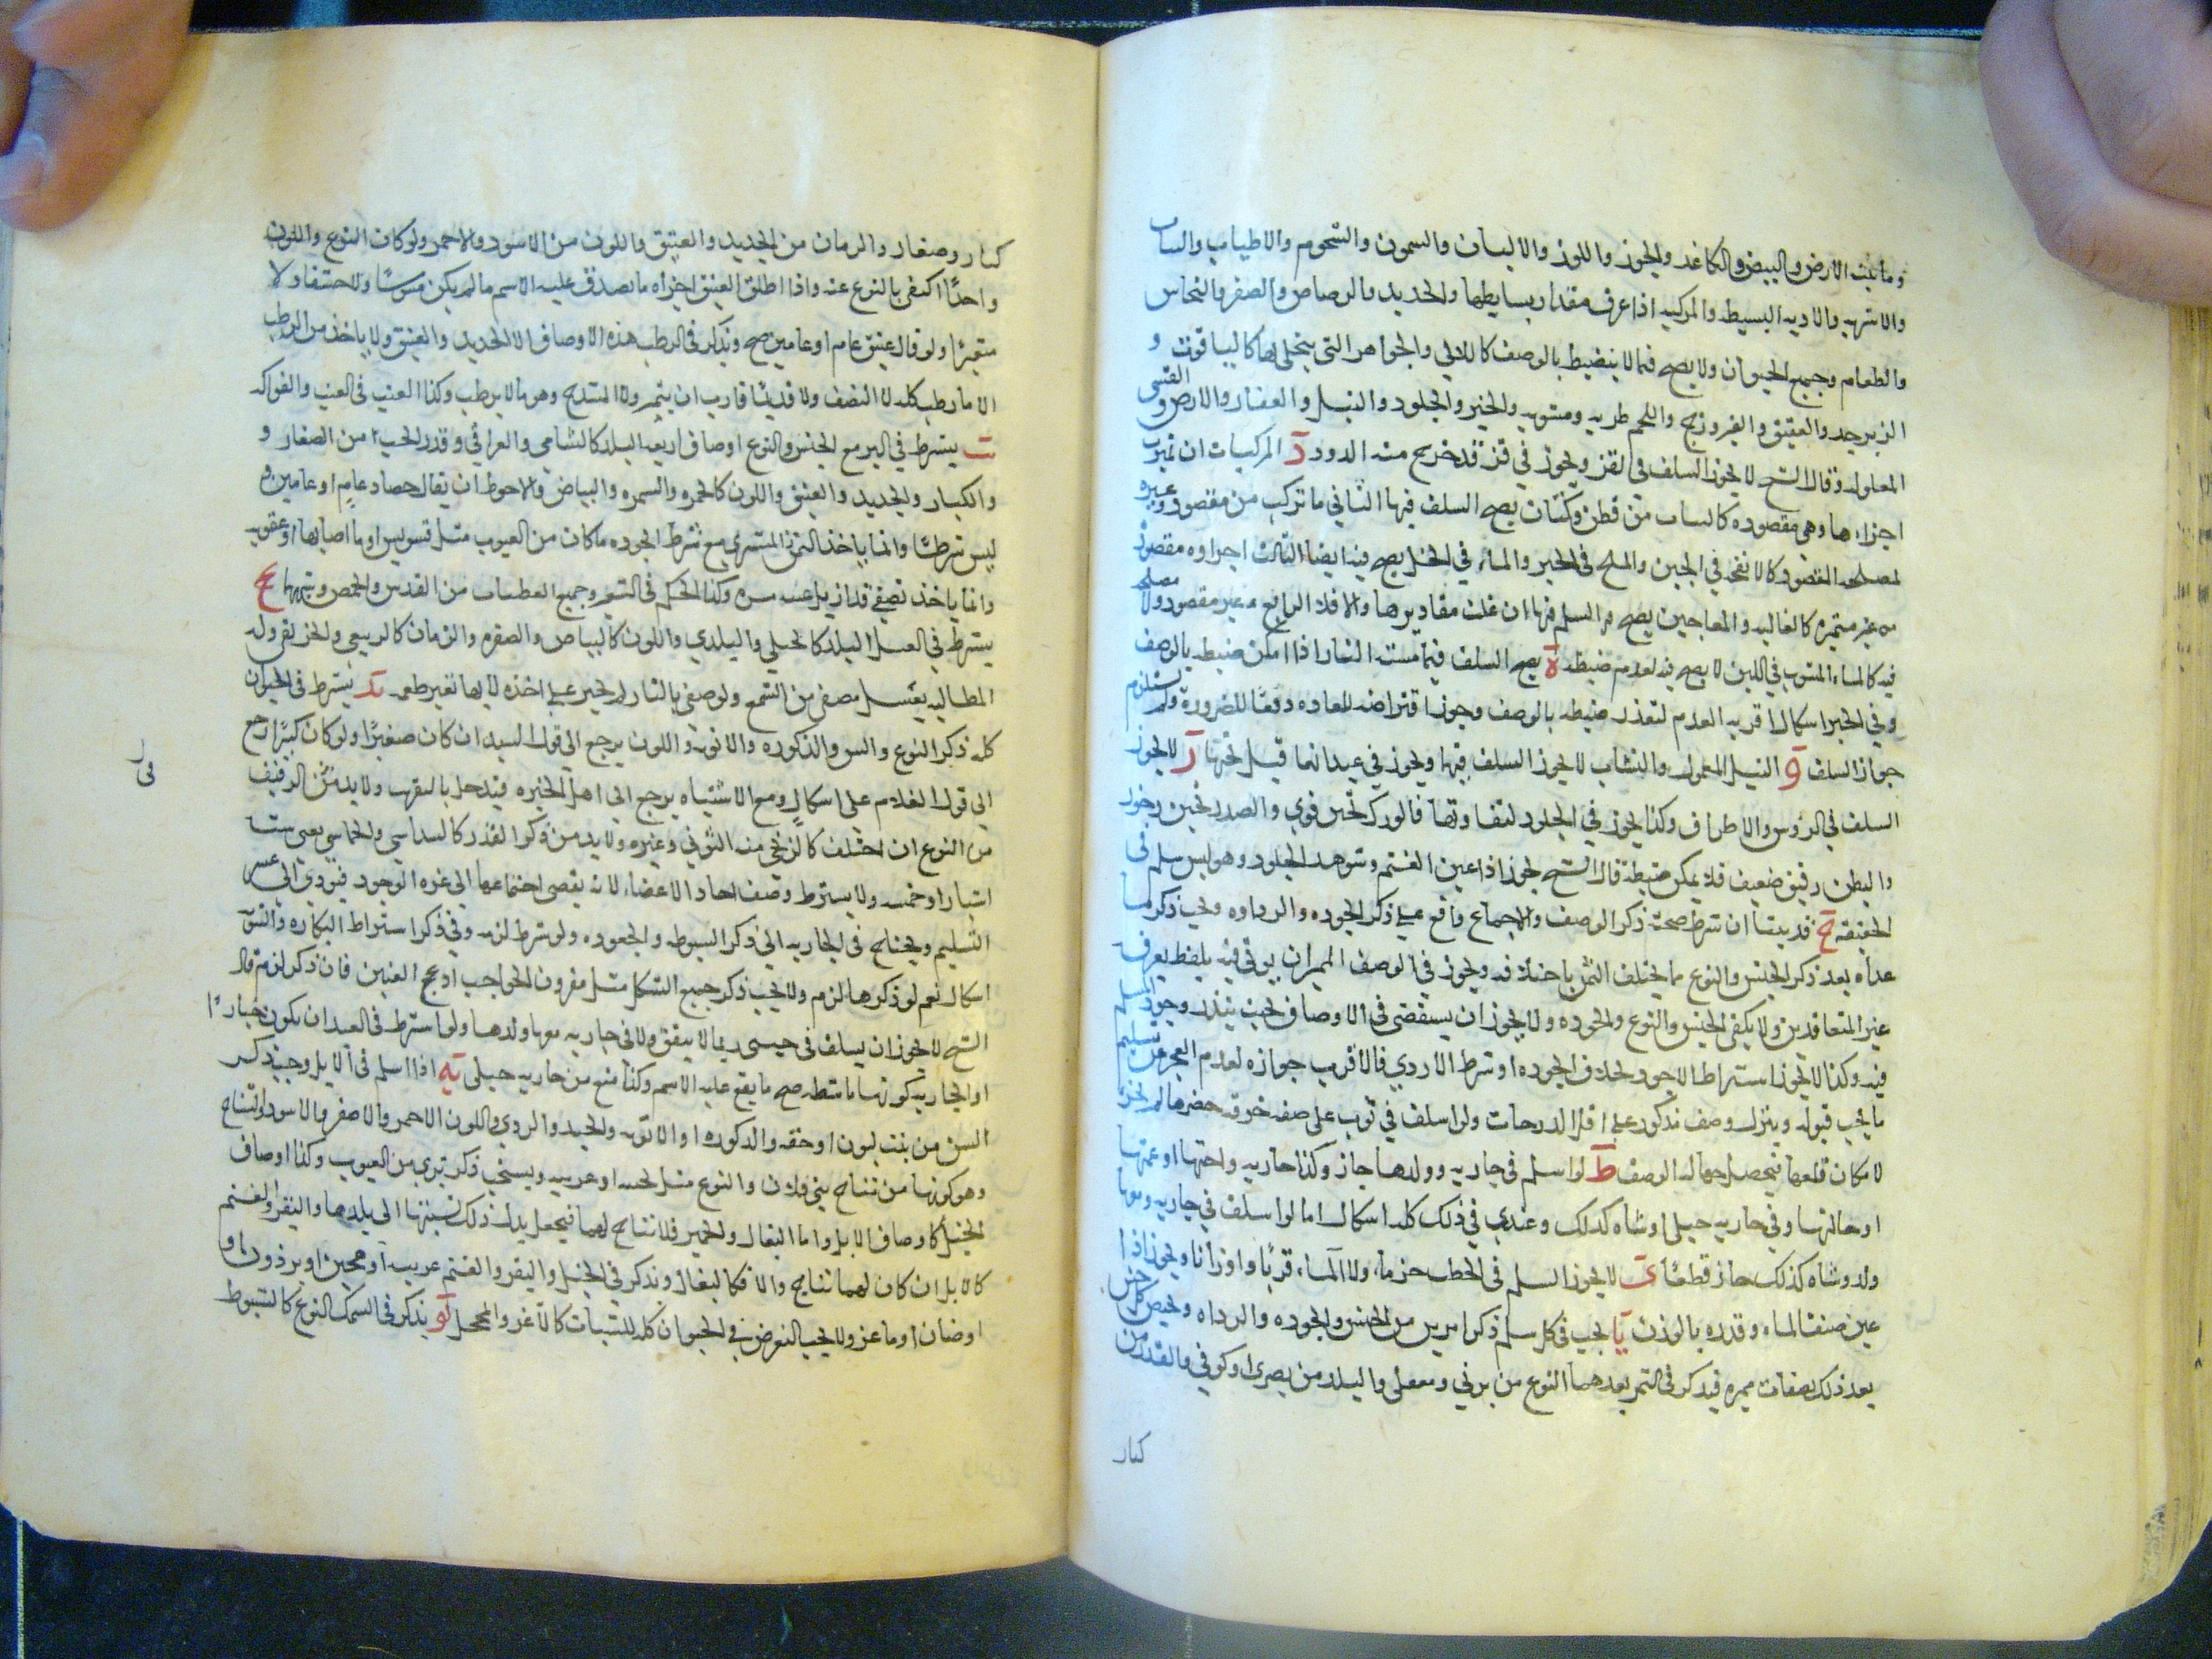 وما تنبت الارض والبيض والكاغد والجوز واللوز والالبان والسمون والشحوم والاطياب والثياب
والاشربه والادويه البسيطه والمركبه اذا عرف مقدار بسايطها والحديد والرصاص والصفر والنحاس
والطعام وجميع الحيوان ولا يصح فيما لا ينضبط بالوصف كاللالى والجواهر التى يتحلى بها كالياقوت و
الزبرجد والعقيق والفيروزج واللحم طريه ومشويه والخبز والجلود والنبل والعقار والارض والقسى
المعموله وقال الشيخ لا يجوز السلف فى القز ويجوز في قز قد خرج منه الدود د المركبات ان تميزت
اجزاءها وهى مقصوده كالثياب من قطن وكتان يصح السلف فيها الثاني ما تركب من مقصود وغيره
لمصلحه المقصود كالانفحه في الجبن والملح فى الخبز والماء في الخل يصح فيه ايضا الثالث اجزاوه مقصوده
غير متميزه كالغاليه والمعاجين يصح السلم فيها ان علمت مقاديرها والا فلا الرابع غير مقصود ولا مصلحه
فيه كالماء المشوب في اللبن لا يصح فيه لعدم ضبطه ه يصح السلف فيما مسته النار اذا امكن ضبطه بالوصف
وفي الخبز اشكال اقربه العدم لتعذر ضبطه بالوصف وجواز اقتراضه للعاده دفعا للضرورة ولا يستلزم
جواز السلف و النبل المعمول والنشاب لا يجوز السلف فيها ويجوز في عيدانها قبل نحتها ز لا يجوز
السلف في الرؤس والاطراف وكذا لا يجوز في الجلود لتفاوتها فالورك ثخين قوي والصدر ثخين رخو
والبطن رقيق ضعيف فلا يمكن ضبطه قال الشيخ يجوز اذا عين الغنم وشوهد الجلود وهو ليس سلم في
الحقيقه ح قد بينا ان شرط صحته ذكر الوصف والاجماع واقع على ذكر الجوده والرداوه ويجب ذكر ما
عداه بعد ذكر الجنس والنوع ما يختلف الثمن باختلافه ويجوز في الوصف
غير المتعاقدين ولا يكفى الجنس والنوع والجوده ولا يجوز ان يستقصى فى الاوصاف بحيث يتعذر وجود المسلم
فيه وكذا لا يجوز استراط الاجود بخلاف الجوده او شرط الاردي فالاقرب جوازه لعدم العجز عن تسليم
ما يجب قبوله وينزل وصف مذكور على اقل الدرجات ولو اسلف في ثوب على صفه خرقه احضرها لم يجز
لامكان تلفها فيحصل جهاله الوصف ط لو اسلم فى جاريه وولدها جاز وكذا جاريه واختها او عمتها
او خالتها وفي جاريه حبلى او شاه كذلك وعندي في ذلك كله اشكال اما لو اسلف في جاريه ومعها
ولد وشاه كذلك جاز قطعا ى لا يجوز السلم فى الحطب حزما ولا الماء قربا واوزانا ويجوز اذا
عين صنف الماء وقدره بالوزن يا يجب في كل سلم ذكر امرين من الجنس والجوده والرداه ويختص كل جنس
بعد ذلك بصفات مميزه فيذكر فى التمر بعدهما النوع من برني ومعقلى والبلد من بصرى او كوفي والقدر من
كبار
كبار وصغار والزمان من الجديد والعتيق واللون من الاسود والاحمر ولو كان النوع واللون
واحدا اكتفى بالنوع عنه واذا اطلق العتيق اجزاه ما يصدق عليه الاسم ما لم يكن مسوسا ولا حشفا ولا
متغيرا ولو قال عتيق عام او عامين صح ويذكر في الرطب هذه الاوصاف الا الحديد والعتيق ولا ياخذ من الرطب
الا ما رطب كله لا المنصف ولا قديما قارب ان يتمر ولا المشدخ وهو ما لا يرطب وكذا العنب في العنب والفواكه
يب يشترط في البر مع الجنس والنوع اوصاف اربعه البلد كالشامى والعراقي وقدر الحب من الصغار و
والكبار والجديد والعتيق واللون كالحمره والسمره والبياض والاحوط ان يقال حصاد عام او عامين و
ليس شرطا وانما ياخذ المشترى مع شرط الجوده ما كان من العيوب مثل تسويس او ما اصابها او عقوبه
وانما ياخذ نصفى قد ازيل عنه وكذا الحكم فى الشعير وجميع من العدس والحمص وشبهها يج
يشترط في العسل البلد كالجبلى والبلدي واللون كالبياض والصفره والزمان كالربيعي والخريفى وله
المطالبه بعسل مصفى من الشمع ولو صفى بالنار لم يجبر على اخذه لانها تغير طعمه يد يشترط فى الحيوان
كله ذكر النوع والسن والذكوره والانوثه واللون يرجع الى قول السيد ان كان صغيرا ولو كان كبيرا رجع
الى قول الغلام على اشكال ومع الاشتباه يرجع الى اهل الخبره فيدخل بالتقريب ولا بد فى الرقيق
من النوع ان اختلف كالزنجى منه النوبي وغيره ولا بد من ذكر القدر كالسداسى والخماسى يعنى سته
اشبار او خمسه ولا يشترط وصف احاد الاعضاء لانه يقضى اجتماعها الى عزه الوجود فيودي الى عسر
التسليم ويحتاج فى الجاريه الى ذكر السبوطه والجعوده ولو شرط لزمه وفي ذكر استراط البكاره والثيوبه
اشكال نعم لو ذكرها لزم ولا يجب ذكر جميع الشكل مثل مقرون الحواجب ادعج العينين فان ذكر لزم قال
الشيخ لا يجوز ان يسلف في خنثى ربما لا يتفق ولا فى جاريه معها ولدها ولو استرط في العبد ان يكون خبازا
او الجاريه كونها ماشطه صح ما يقع عليه الاسم وكذا منع من جاريه حبلى يه اذا اسلم في الابل وجب ذكر
السن من بنت لبون او حقه والذكوره او الانوثه والجيد والردي واللون الاحمر والاصفر والاسود والنتاج
وهو كونها من نتاج بني فلان والنوع مثل بختيه او عربيه ويستحب ذكر بري من العيوب وكذا اوصاف
الخيل كاوصاف الابل واما البغال والحمير فلا نتاج لهما فيجعل بدل ذلك نسبتها الى بلدها والبقر والغنم
كالابل ان كان لهما نتاج والا فكالبغال ويذكر في الخيل والبقر والغنم عربيه او هجين او برذون او
او ضان او ماعز ولا يجب التعرض في الحيوان كله للشيات كالاغر والمحجل يو يذكر فى السمك النوع كالشبوط